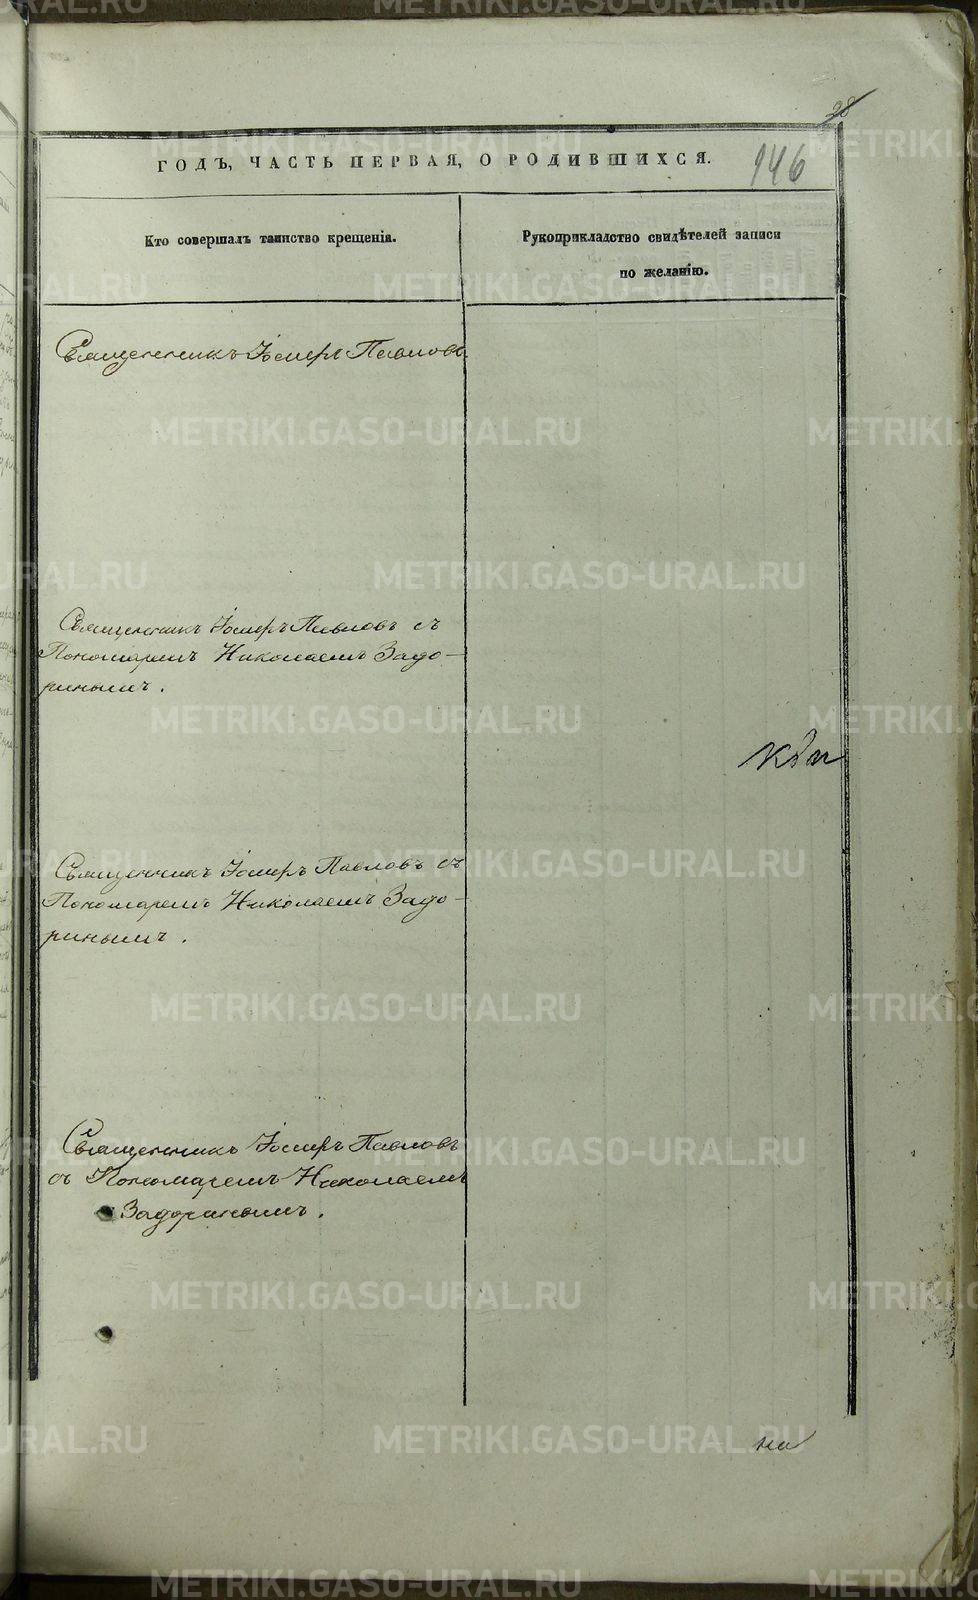 28
146
ГОДЪ, ЧАСТЬ ПЕРВАЯ, О РОДИВШИХСЯ.
Кто совершалъ таинство крещенія.
Рукоприкладство свидѣтелей записи
по желанію.
Священникъ Іосифъ Павловъ
Священникъ Іосифъ Павловъ съ
Пономаремъ Николаемъ Задо-
ринымъ.
Священникъ Іосифъ Павловъ съ
Пономаремъ Николаемъ Задо-
ринымъ.
Священникъ Іосифъ Павловъ
съ Пономаремъ Николаемъ
Задоринымъ.
METRIKI.GASO-URAL.RU